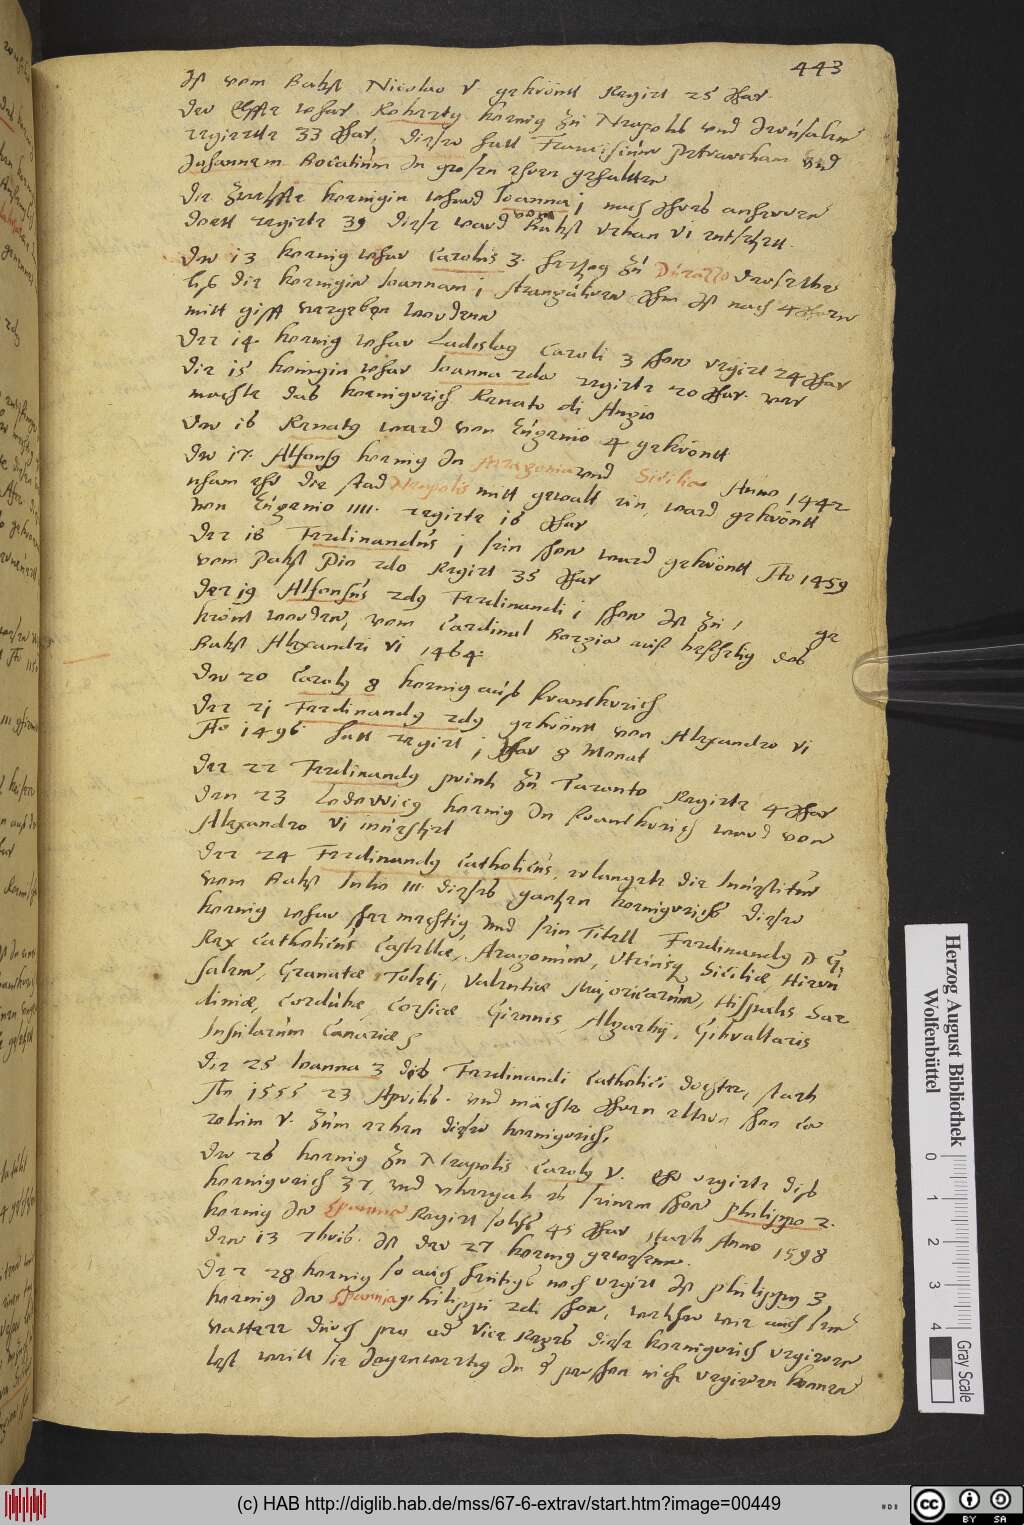 443
Ist vom Babst Nicolao V gekrönt Regirt 25 Jhar
Der Elffte wahr Roberty koenig zu Neapolis und Jerusalem
regierete 33 Jhar, dieser hatt Franciscum petrarcham und
Johannem Bocatium in grosen ehren gehalten
Die zwelffte koenigin ward Joanna j nach Ihres anherren
doett regirte 39 diese ward vom Babst Urban VI entsetzett.
Der 13 koenig wahr Carolus 3. hertzog zu Durazzo derselbe
lies die koenigin Joannam j strangulieren Ihm ist nach 4 Jharn
mitt gifft vergeben wordenn
Der 14. koenig wahr Ladislag Caroli 3 shon regirt 24 Jhar
Die 15 koinigin wahr Joanna 2da regirte 20 Jhar. ver
machte das koenigreich Renato di Angio
Der 16 Renaty ward von Eugenio 4 gekrönt
Der 17. Alfonsg koenig In Arragonia und Sicilia Anno 1442
nham ehr die stad Neapolis mitt gewalt ein, ward gekrönt
von Eugenio IIII. regirte 16 Jhar
Der 18 Ferdinandus j sein shon ward gekrönt Ao 1459
vom Pabst Pio 2do Regirt 35 Jhar
Der 19 Alfonsus 2dg Ferdinandi j shon ist zu j ge
krönt worden, vom Cardinal Borgia auß beffehlig des
Babst Alexandri VI 1464.
Der 20 Caroly 8 koenig auß franckreich
Der 21 Ferdinandg 2dg gekrönt von Alexandro VI
Ao 1496 hatt regirt j Jhar 8 Monat
Der 22 Ferdinandg printz zu Taranto Regirte 4 Jhar
Den 23 Lodowicg koenig In franckreich ward von
Alexandro VI investirt
Der 24 Ferdinandg Catholicus, erlangete die Investitur
vom Babst Julio III. dieses gantzen koenigreichs dieser
koenig wahr sher mechtig und sein Titell Ferdinandg D. G.
Rex Catholicus Castellae, Aragonum, Utriusq Siciliae, Hieru
salem, Granatae Toleti, Valentiae Majoricarum, Hispalis Sar
diniae, Cordubae, Corsicae Giennis, Algarbij, Gibraltaris
Insularum Canariae
Die 25 Joanna 3 des Ferdinandi Catholici dochter, starb
Ao 1555 23 Aprilis. und machte Ihren eltern shon Ca
rolum V. zum erben dieser koenigreich,
Der 26 koenig zu Neapolis Caroly V. Ehr regirte diß
koenigreich 37, und ubergab es seinem shon philippo 2.
koenig In Spannia Regirt solchs 45 Jhar, starb Anno 1598
den 13 7bris. Ist der 27 koenig gewesenn.
Der 28 koenig so auch heutigs noch regirt ist philippg 3
koenig In Spannia philippi 2di shon, welcher wie auch sein
vatterr durch pro od Vice Reges diese koenigreich regieren
lest weill sie Jegenwertig In person nich regieren konnen
(c) HAB http://diglib.hab.de/mss/67-6-extrav/start.htm?image=00449
Herzog August Bibliothek
Wolfenbüttel
0 1 2 3 4
Gray Scale
HAB
cc BY SA